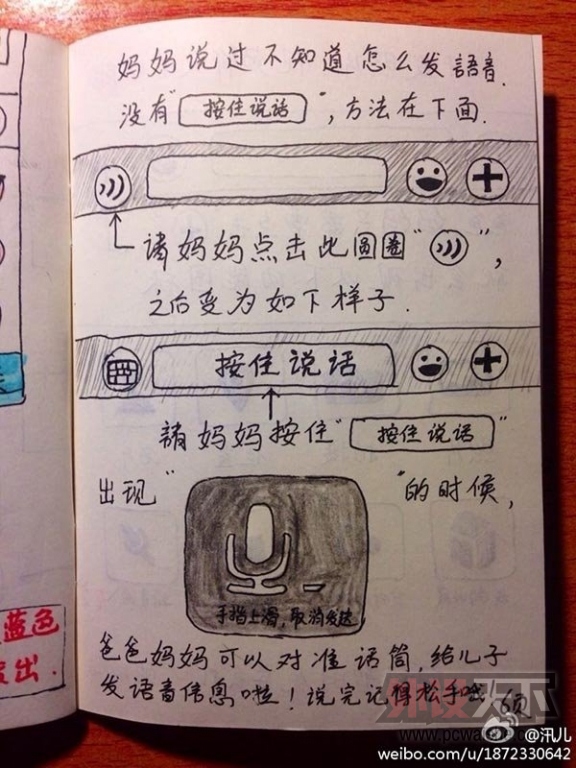 妈妈说过不知道怎么发語音.
没有"按住说话",方法在下面.
请妈妈点击此圆圈" ",
之后变为如下样子.
按住说话
請妈妈按住"按住说话"
出现" "的时候,
手指上滑,取消发送
爸爸妈妈可以对准话筒,给儿子
发语音信息啦!说完记得松手哦
6页
蓝色
出.
@汛儿
weibo.com/u/1872330642